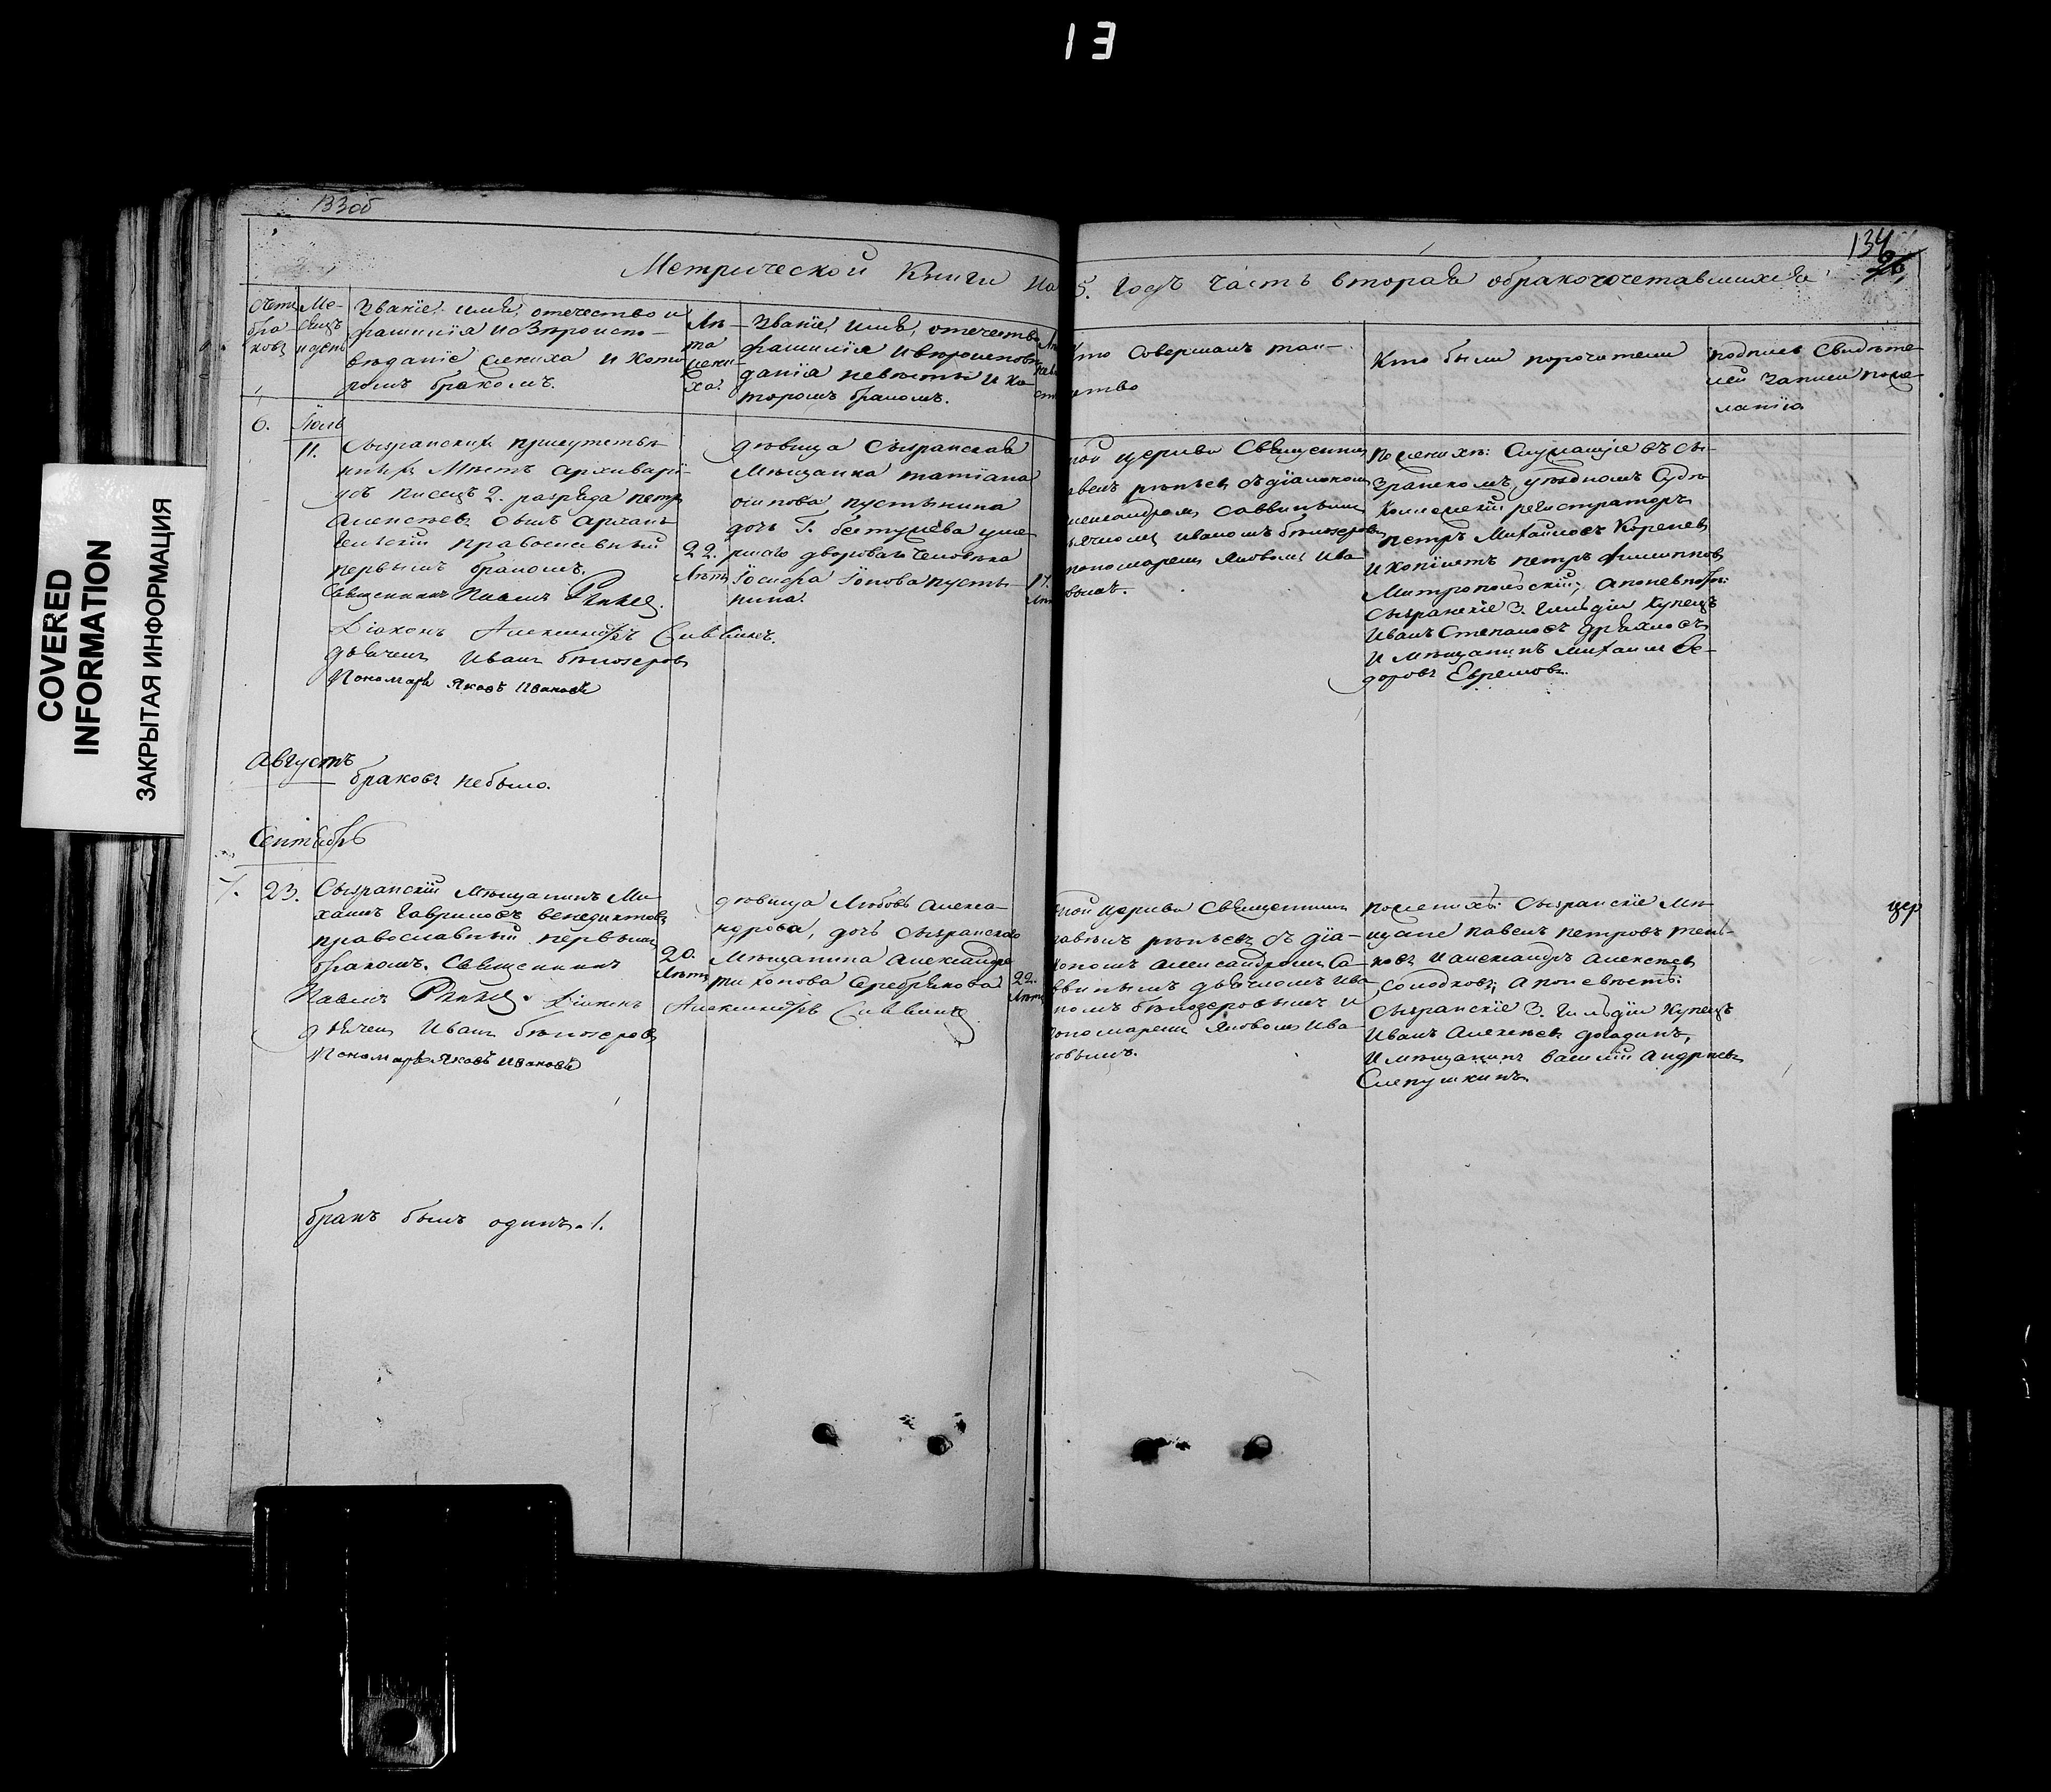 13
133об
134
COVERED
INFORMATION
ЗАКРЫТАЯ ИНФОРМАЦИЯ
Метрической Книги на
5. Годъ часть вторая обракосочетавшихся
Счетъ
бра
ковъ
Ме-
сяцъ
и день
Званіе, имя, отечество и
фамилія и вѣроиспо-
вѣданіе жениха и кото
рымъ бракомъ.
Лѣ-
та
жени
ха.
Званіе, имя, отечество
фамилія и вѣроисповѣ
данія невѣсты и ко
торымъ бракомъ.
Кто Совершалъ таи-
нство
Кто были поручители
подпись Свидѣте
лей записи по же
ланію
6.
Іюль
11.
Сызранскихъ присутствен
ныхъ Мѣстъ архиварі-
усъ писецъ 2. разряда петръ
Алексѣевъ
православный
первымъ бракомъ.
Священникъ Павелъ
Діаконъ Александръ Саввинъ.
дьячекъ Иванъ бѣлозеровъ
Пономарь Яковъ Ивановъ
22.
Лѣтъ
дѣвица Сызранская
Мѣщанка татіана
осипова пустынина
дочь Г. бестужева уме
ршаго двороваго человѣка
Іосифа Іонова пусты
нина.
17.
Лѣт
ной церкви Священник
авелъ рѣпьевъ съ діакономъ
лександромъ саввинымъ
ьячкомъ иваномъ бѣлозеров
пономаремъ яковомъ ива
вымъ.
по женихѣ: Служащіе въ сы-
зранскомъ уѣздномъ Судѣ
Коллежскій регистраторъ
петръ Михайловъ Кореневъ
и копіистъ петръ филипповъ
Митропольскій; а по невѣстѣ:
Сызранскіе 3. гильдіи купецъ
Иванъ Степановъ дряхловъ
и мѣщанинъ михаилъ Ѳе-
доровъ Ефремовъ.
Августъ
браковъ небыло.
Сентябрь
7.
23.
Сызранскій мѣщанинъ Ми-
хаилъ Гавриловъ венедиктовъ
православный первымъ
бракомъ. Священникъ
Павелъ
Діаконъ Александръ Саввинъ
дьячекъ Иванъ бѣлозеровъ
Пономарь Яковъ Ивановъ
20.
Лѣтъ
дѣвица Любовь Алекса-
ндрова, дочь сызранскаго
мѣщанина Александра
тихонова Серебрякова
22.
Лѣтъ
ной церкви Священникъ
авелъ рѣпьевъ съ діа-
кономъ александромъ са-
ввинымъ дьячкомъ ива
номъ бѣлозеровымъ и
пономаремъ яковомъ ива-
новымъ.
по женихѣ: сызранскіе мѣ
щане павелъ петровъ
и александръ алексѣевъ
солодковъ; а по невѣстѣ:
Сызранскіе 3. гильдіи купецъ
Иванъ Алексѣевъ догадинъ,
и мѣщанинъ василій андреевъ
Слепушкинъ
цер
бракъ былъ одинъ. 1.